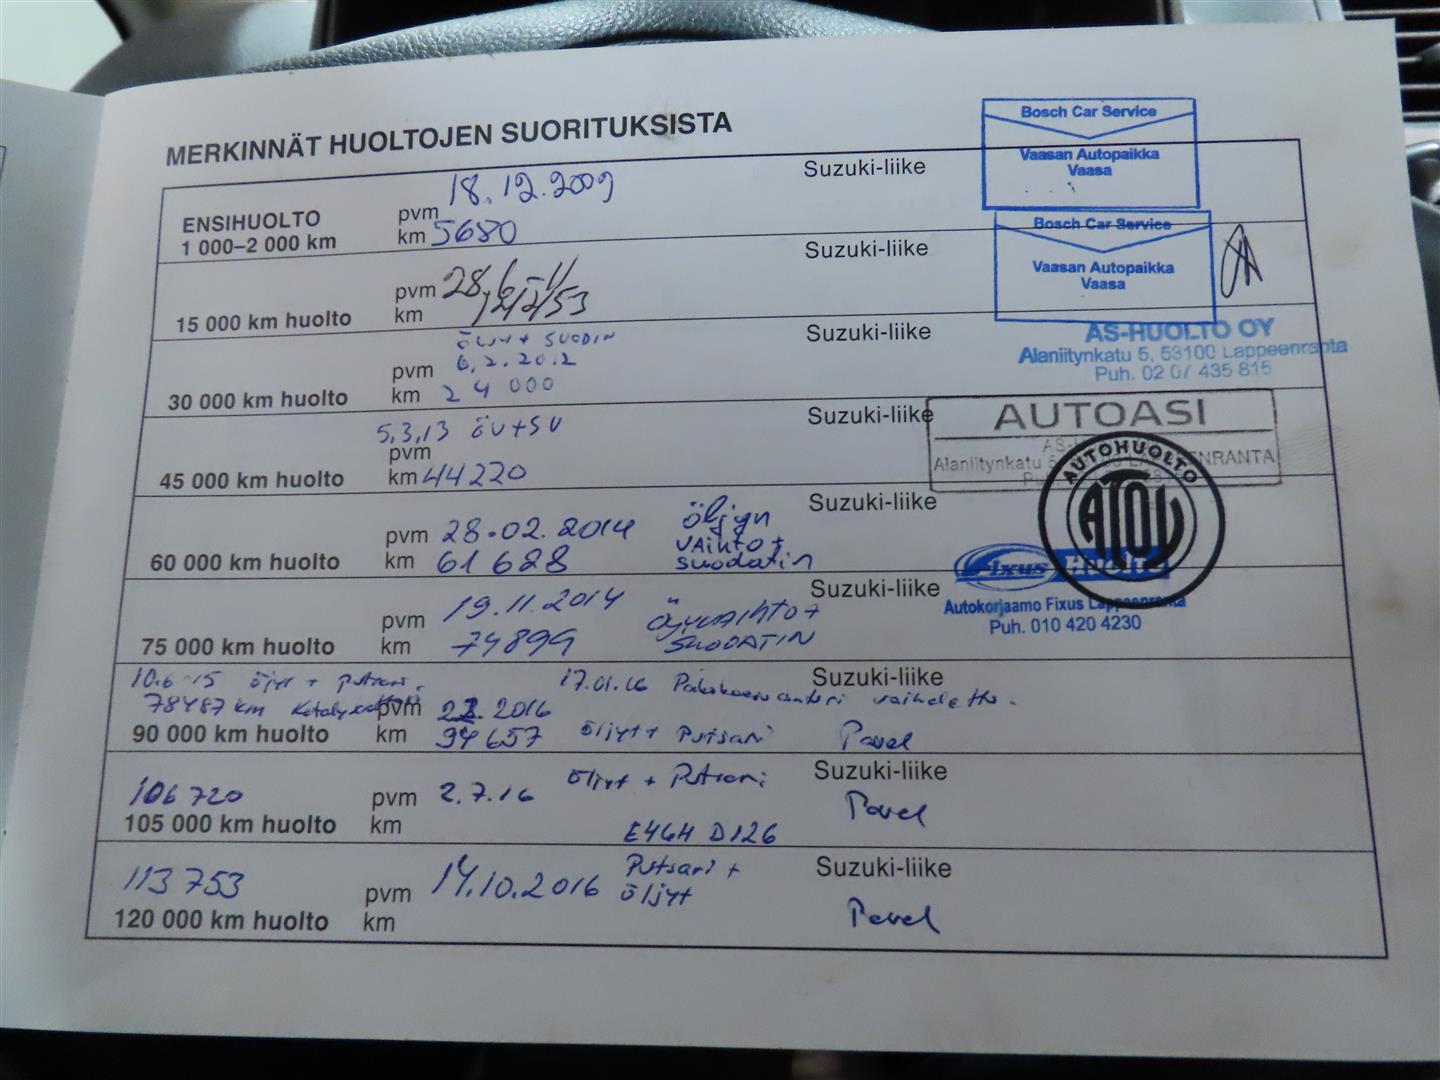 MERKINNÄT HUOLTOJEN SUORITUKSISTA
Bosch Car Service
Vaasan Autopaikka
Vaasa
ENSIHUOLTO
1 000–2 000 km
pvm 18.12.2009
km 5680
Suzuki-liike
Bosch Car Service
Vaasan Autopaikka
Vaasa
15 000 km huolto
pvm 28.6-11
km
Suzuki-liike
AS-HUOLTO OY
Alaniitynkatu 5, 53100 Lappeenranta
Puh. 02 07 435 815
30 000 km huolto
SUODIN
pvm 6.2.2012
km 24 000
Suzuki-liike
AUTOASI
Alaniitynkatu
ENRANTA
45 000 km huolto
5,3,13 öv+sv
pvm
km 44220
Suzuki-liike
AUTOHUOLTO
60 000 km huolto
pvm 28.02.2014
km 61 628
öljyn
vaihto +
suodatin
Suzuki-liike
Fixus Huolto
Autokorjaamo Fixus Lappeenranta
Puh. 010 420 4230
75 000 km huolto
pvm 19.11.2014
km 74899
ÖLJYVAIHTO +
SUODATIN
Suzuki-liike
10.6-15 öljyt + putsari
78487 km
17.01.16 vaihdettu.
90 000 km huolto
pvm 2016
km 94657
öljyt + putsari
Suzuki-liike
Pavel
106 720
105 000 km huolto
pvm 2.7.16
km
öljyt + Putsari
E464 D126
Suzuki-liike
Pavel
113 753
120 000 km huolto
pvm 14.10.2016
km
Putsari +
öljyt
Suzuki-liike
Pavel